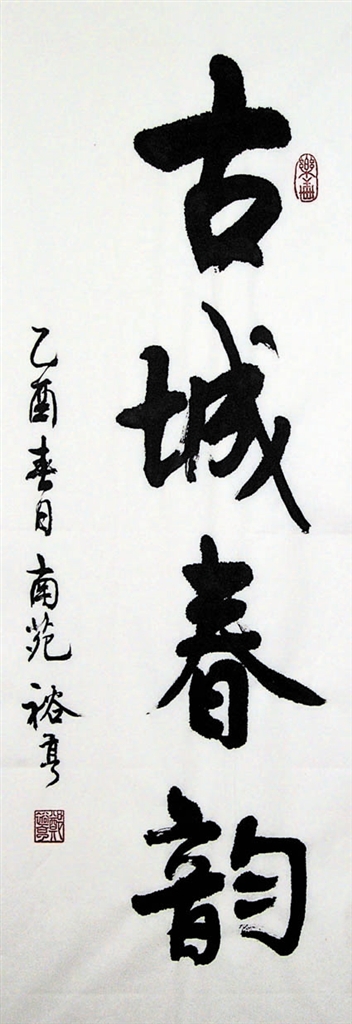 古城春韵
乙酉春日南苑裕亭